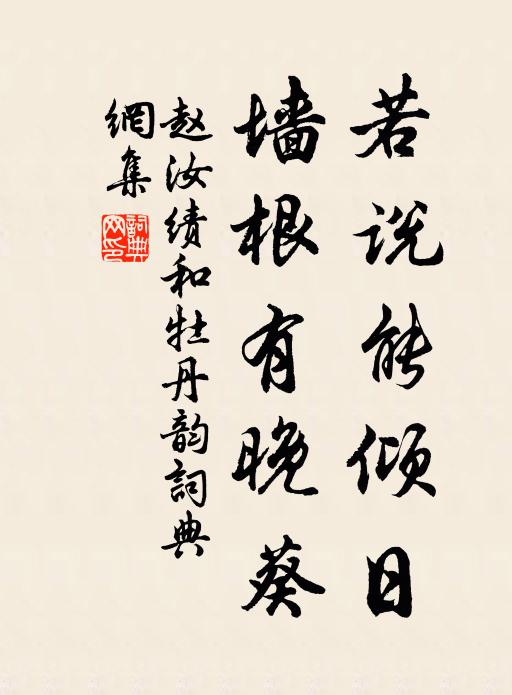 若说能倾日
墙根有晚葵
赵汝绩和牡丹韵詞典
網集
詞典網印